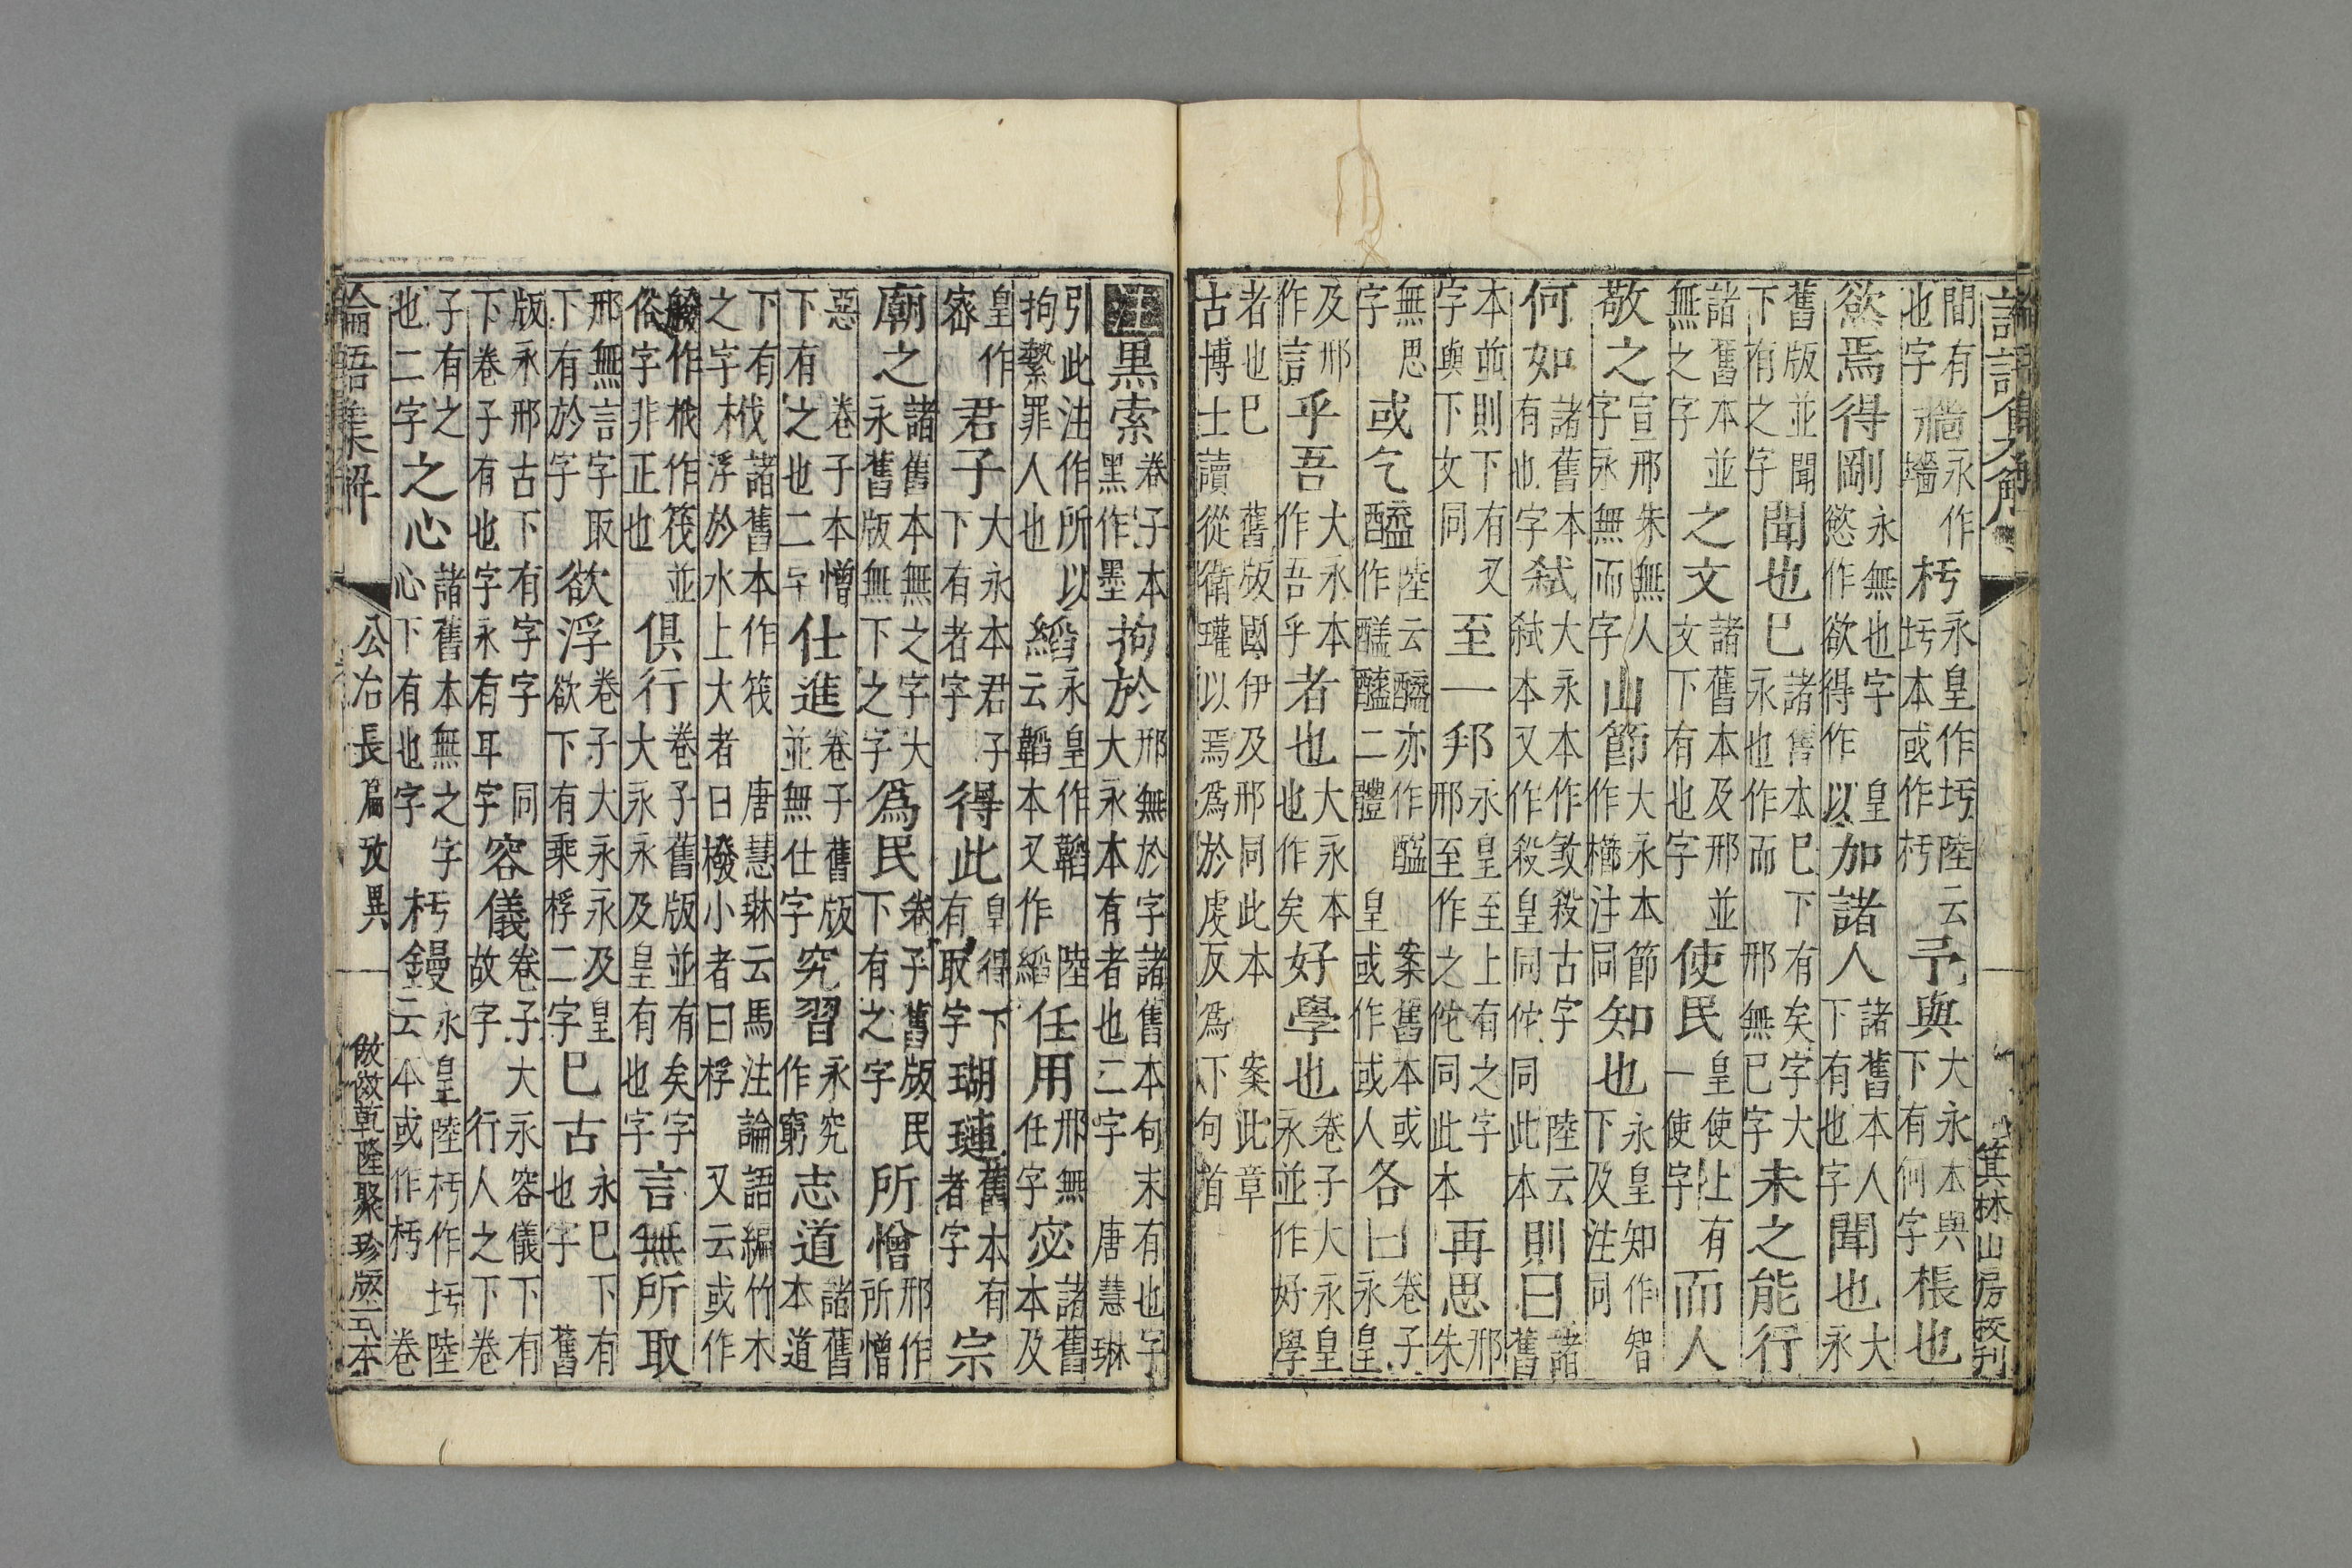 論語集解 箕林山房校刊
間有也字牆永作墻杇永皇作圬陸云圬本或作杇予與大永本與下有何字棖也
慾焉得剛永無也字慾作欲皇得作以加諸人諸舊本人下有也字聞也大永
舊版並聞下有之字聞也已諸舊本已下有矣字大永也作而邢無已字未之能行
諸舊本並無之字之文諸舊本及邢並文下有也字使民皇使上有一使字而人
敬之宣邢朱無人字永無而字山節大永本節作櫛注同知也永皇知作智下及注同
何如諸舊本有也字弑大永本作煞殺古字陸云弑本又作殺皇同佗同此本則曰諸舊
本並則下有又字與下文同至一邦永皇至上有之字邢至作之佗同此本再思邢朱
無思字或乞醯陸云亦作二體皇或作或人案舊本或各曰卷子永皇
及邢作言乎吾大永本作吾乎者也大永本也作矣好學也卷子大永皇永並作好學
者也已古博士讀舊版國伊及邢同此本從衛瓘以焉爲於虔反爲下句首案此章
注黑索卷子本黑作墨拘於邢無於字諸舊本句末有也字大永本有者也二字唐慧琳
引此注作所以拘縶罪人也縚永皇作韜陸云韜本又作縚任用邢無任字宓諸舊本及
皇作密君子大永本君子下有者字得此皇得下有取字瑚璉舊本有者字宗
廟之諸舊本無之字大永舊版無下之字爲民卷子舊版民下有之字所憎邢作所憎
惡卷子本憎下有之也二字仕進卷子舊版並無仕字究習永究作窮志道諸舊本道
下有之字伐諸舊本作筏唐慧琳云馬注論語編竹木材浮於水上大者曰橃小者曰桴又云或作
作橃作筏並俗字非正也俱行卷子舊版並有矣字大永永及皇有也字言無所取
邢無言字取下有於字欲浮卷子大永永及皇欲下有乘桴二字已古永已下有也字舊
版永邢古下有字字同下卷子有也字永有耳字容儀卷子大永容儀下有故字行人之下卷
子有之也二字之心諸舊本無之字心下有也字杇鏝永皇陸杇作圬陸云本或作杇卷
論語集解 公冶長篇攷異 一 倣乾隆聚珍版式本